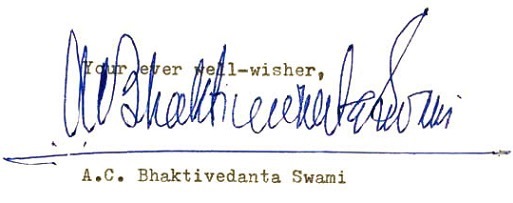 Your ever well-wisher,
ACBhaktivedanta Swami
A.C. Bhaktivedanta Swami